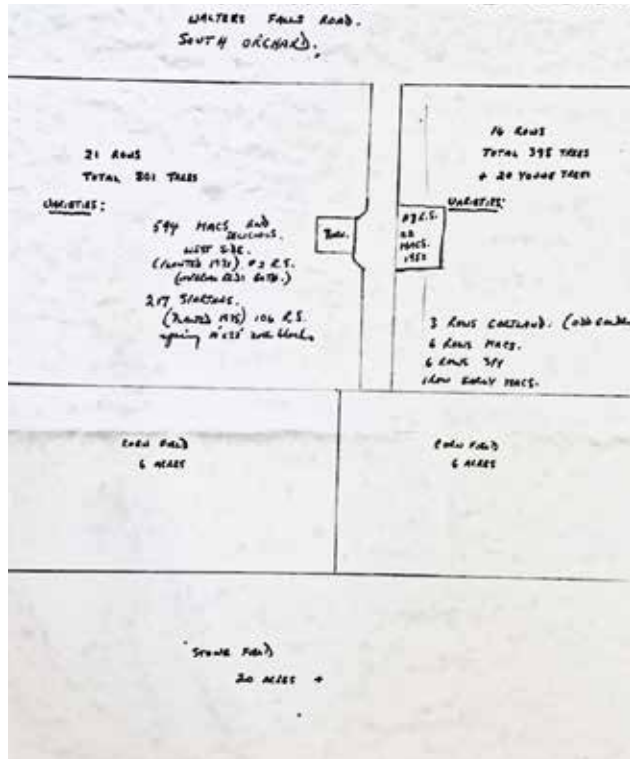 WALTERS FALLS ROAD.
SOUTH ORCHARD.
21 ROWS
TOTAL 801 TREES
VARIETIES:
594 MACS AND
DELICIOUS.
WEST SIDE.
(PLANTED 1971) #2 R.S.
217 SPARTANS.
(PLANTED 1975) 106 R.S.
spacing
BARN.
16 ROWS
TOTAL 395 TREES
+ 20 YOUNG TREES
VARIETIES:
R.S.
22
MACS.
1952
3 ROWS CORTLAND. (ODD
6 ROWS MACS.
6 ROWS SPY
1 ROW EARLY MACS.
CORN FIELD
6 ACRES
CORN FIELD
6 ACRES
STONE FIELD
20 ACRES +